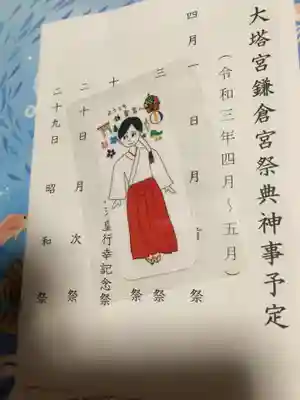 大塔宮鎌倉宮祭典神事予定
（令和三年四月～五月）
四月一日 月 祭
三 祭
十 皇行幸記念祭
二十日 月次祭
二十九日 昭和祭